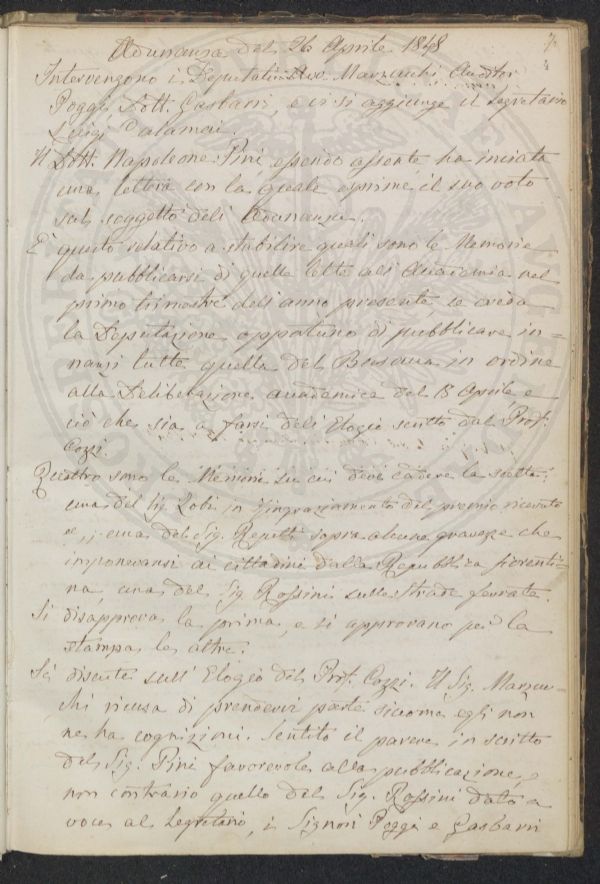 Adunanza del 26 Aprile 1848
Intervengono i Deputati Avv. Marzucchi Auditor
Poggi Dott. Gasbarri, e vi si aggiunge il Segretario
Luigi Calamai.
Il Dott. Napoleone Pini essendo assente ha inviata
una lettera con la quale esprime il suo voto
sul soggetto dell Adunanza.
E' questo relativo a stabilire quali sono le Memorie
da pubblicarsi di quelle lette all' Accademia nel
primo trimestre dell' anno presente se creda
la Deputazione opportuno di pubblicare in=
nanzi tutte quella del in ordine
alla Deliberazione accademica del Aprile e
ciò che sia a farsi dell Elogio scritto dal Prof.
Cozzi.
Quattro sono le Memorie su cui deve cadere la scelta:
una del Sig. Zobi in ringraziamento del premio ricevuto
una del Sig. Repetti sopra alcune gravezze che
imponevansi ai cittadini dalla Repubblica fiorenti=
na, una del Sig. Rossini sulle strade ferrate.
Si disapprova la prima, e si approvano per la
stampa le altre.
Si discute sull' Elogio del Prof. Cozzi. Il Sig. Marzuc=
chi ricusa di prendervi parte siccome egli non
ne ha cognizioni. Sentito il parere in scritto
del Sig. Pini favorevole alla pubblicazione, e
non contrario quello del Sig. Rossini dato a
voce al Segretario, i Signori Poggi e Gasbarri